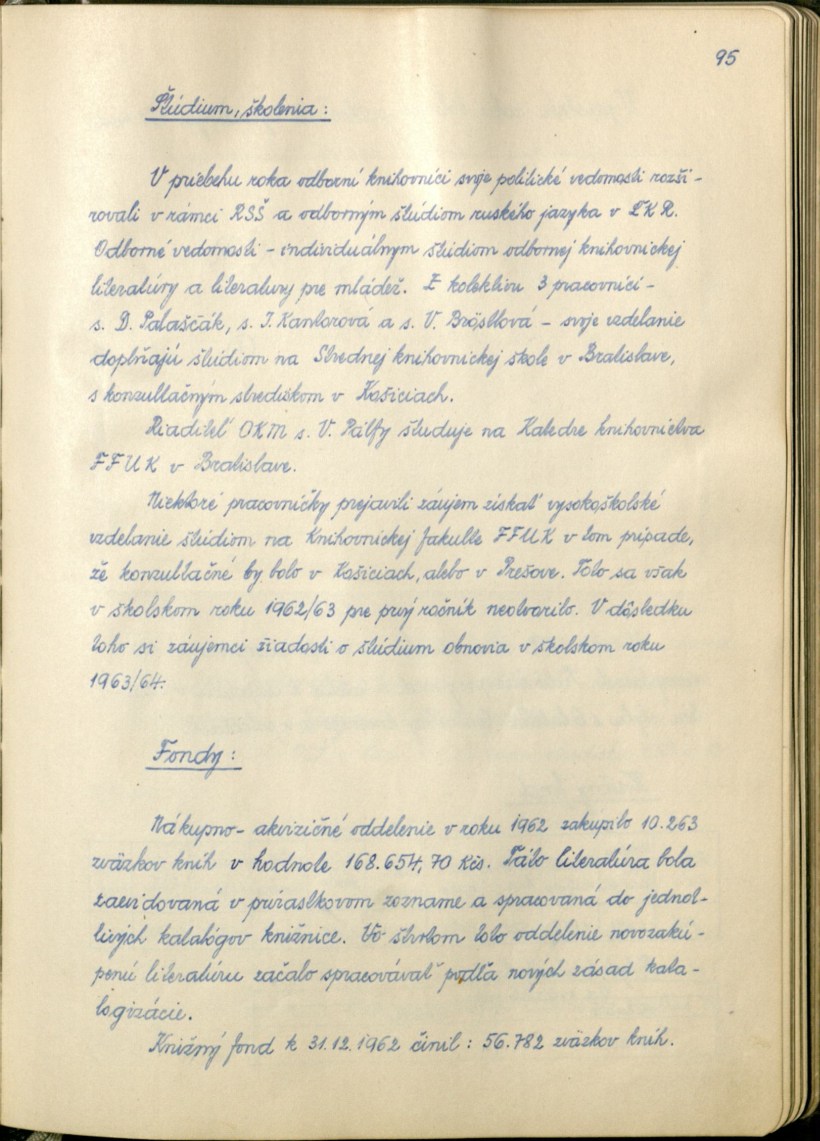 95
Štúdium, školenia:
V priebehu roka odborní knihovníci svoje politické vedomosti rozší-
rovali v rámci RSŠ a odborným štúdiom ruského jazyka v ĽKR.
Odborné vedomosti - individuálnym štúdiom odbornej knihovníckej
literatúry a literatury pre mládež. Z kolektívu 3 pracovníci -
s. D. Palaščák, s. I. Kantorová a s. V. Bröstlová - svoje vzdelanie
doplňajú štúdiom na Strednej knihovníckej škole v Bratislave,
s konzultačným strediskom v Košiciach.
Riaditeľ OKM s. V. Pálfy študuje na Katedre knihovníctva
FFUK v Bratislave.
Niektoré pracovníčky prejavili záujem získať vysokoškolské
vzdelanie štúdiom na Knihovníckej fakulte FFUK v tom prípade,
že konzultačné by bolo v Košiciach, alebo v Prešove. Toto sa však
v školskom roku 1962/63 pre prvý ročník neotvorilo. V dôsledku
toho si záujemci žiadosti o štúdium obnovia v školskom roku
1963/64.
Fondy:
Nákupno- akvizičné oddelenie v roku 1962 zakúpilo 10.263
zväzkov kníh v hodnote 168.654,70 Kčs. Táto literatúra bola
zaevidovaná v prírastkovom zozname a spracovaná do jednot-
livých katalógov knižnice. Vo štvrtom toto oddelenie novozakú-
penú literatúru začalo spracovávať podľa nových zásad kata-
logizácie.
Knižný fond k 31.12.1962 činil: 56.782 zväzkov kníh.